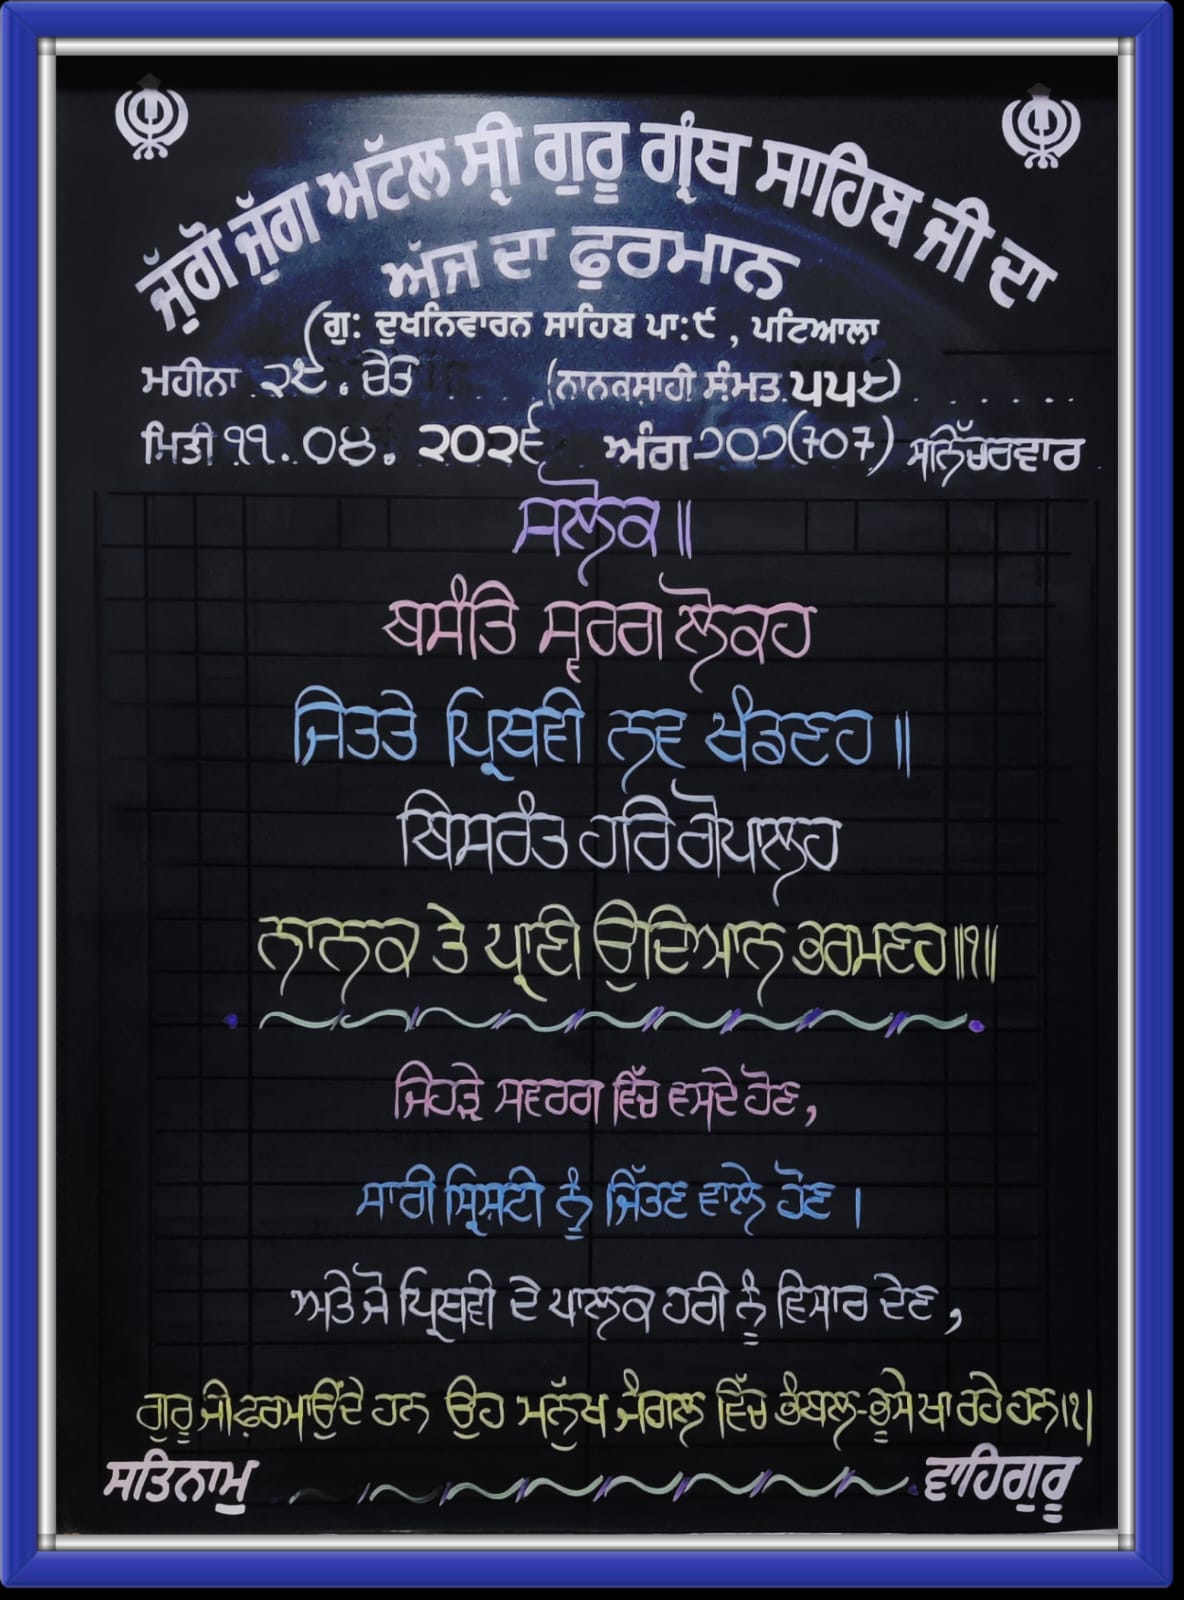 ਜੁੱਗੋ ਜੁੱਗ ਅਟੱਲ ਸ੍ਰੀ ਗੁਰੂ ਗ੍ਰੰਥ ਸਾਹਿਬ ਜੀ ਦਾ
ਅੱਜ ਦਾ ਫੁਰਮਾਨ
(ਗੁ: ਦੁਖਨਿਵਾਰਨ ਸਾਹਿਬ ਪਾ:੯, ਪਟਿਆਲਾ
ਮਹੀਨਾ ੨੯. ਚੇਤ (ਨਾਨਕਸ਼ਾਹੀ ਸੰਮਤ ੫੫੯)
ਮਿਤੀ ੧੧.੦੪.੨੦੨੬ ਅੰਗ ੭੦੭(707) ਸਨਿੱਚਰਵਾਰ
ਸਲੋਕ ॥
ਬਸੰਤਿ ਸ੍ਵਰਗ ਲੋਕਹ
ਜਿਤਤੇ ਪ੍ਰਿਥਵੀ ਨਵ ਖੰਡਣਹ ॥
ਬਿਸਰੰਤ ਹਰਿ ਗੋਪਾਲਹ
ਨਾਨਕ ਤੇ ਪ੍ਰਾਣੀ ਉਦਿਆਨ ਭਰਮਣਹ ॥੧॥
ਜਿਹੜੇ ਸਵਰਗ ਵਿੱਚ ਵਸਦੇ ਹੋਣ,
ਸਾਰੀ ਸ੍ਰਿਸ਼ਟੀ ਨੂੰ ਜਿੱਤਣ ਵਾਲੇ ਹੋਣ ।
ਅਤੇ ਜੋ ਪ੍ਰਿਥਵੀ ਦੇ ਪਾਲਕ ਹਰੀ ਨੂੰ ਵਿਸਾਰ ਦੇਣ,
ਗੁਰੂ ਜੀ ਫ਼ਰਮਾਉਂਦੇ ਹਨ ਉਹ ਮਨੁੱਖ ਜੰਗਲ ਵਿੱਚ ਭੰਬਲ-ਭੂਸੇ ਖਾ ਰਹੇ ਹਨ।੧।
ਸਤਿਨਾਮੁ ਵਾਹਿਗੁਰੂ